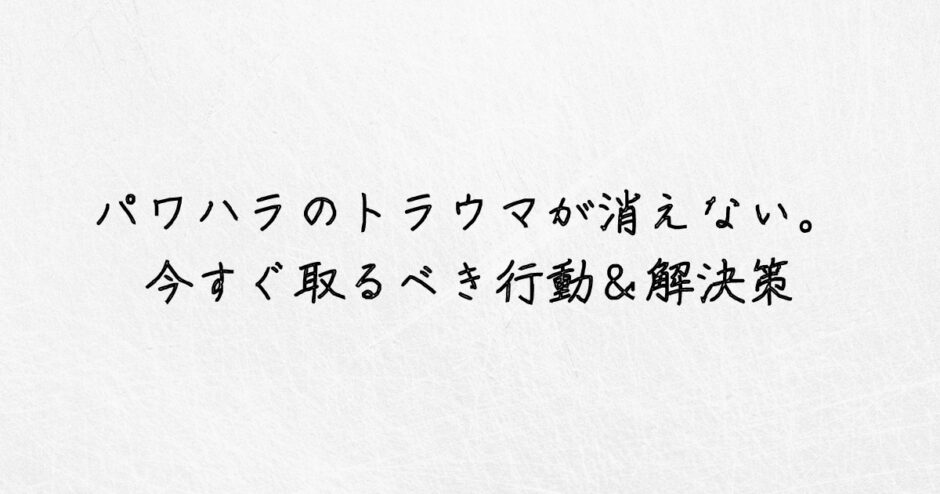 パワハラのトラウマが消えない。
今すぐ取るべき行動&解決策